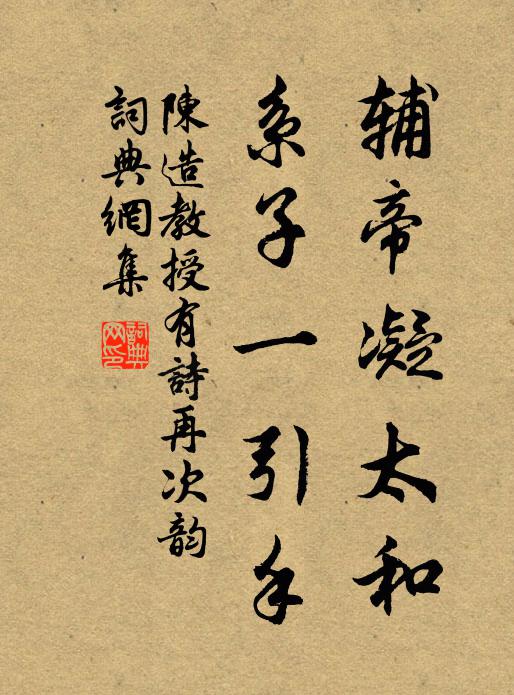 輔帝凝太和
系子一引手
陳造教授有詩再次韵
詞典網集
詞典网印